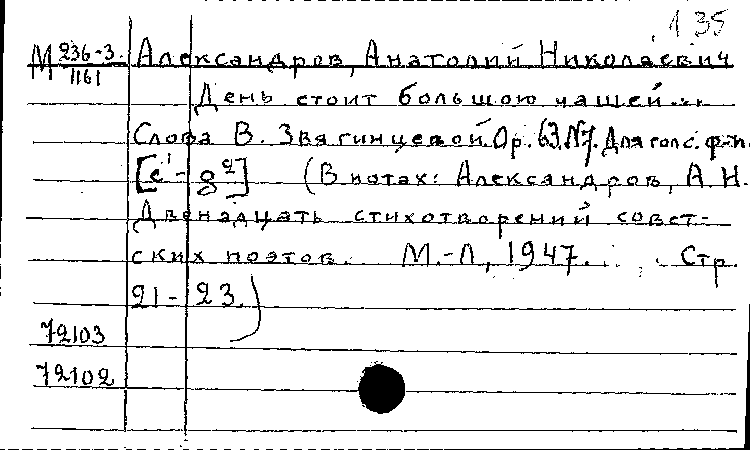 135
М 236-3 Александров, Анатолий Николаевич
1161
День стоит большою чашей...
Слова В. Звягинцевой. Ор. 63, №7. Для голс. ф-п.
[e¹ - g²] (В нотах: Александров, А. Н.
Двенадцать стихотворений совет-
ских поэтов. М.-Л, 1947. Стр.
21-23.)
72103
72102